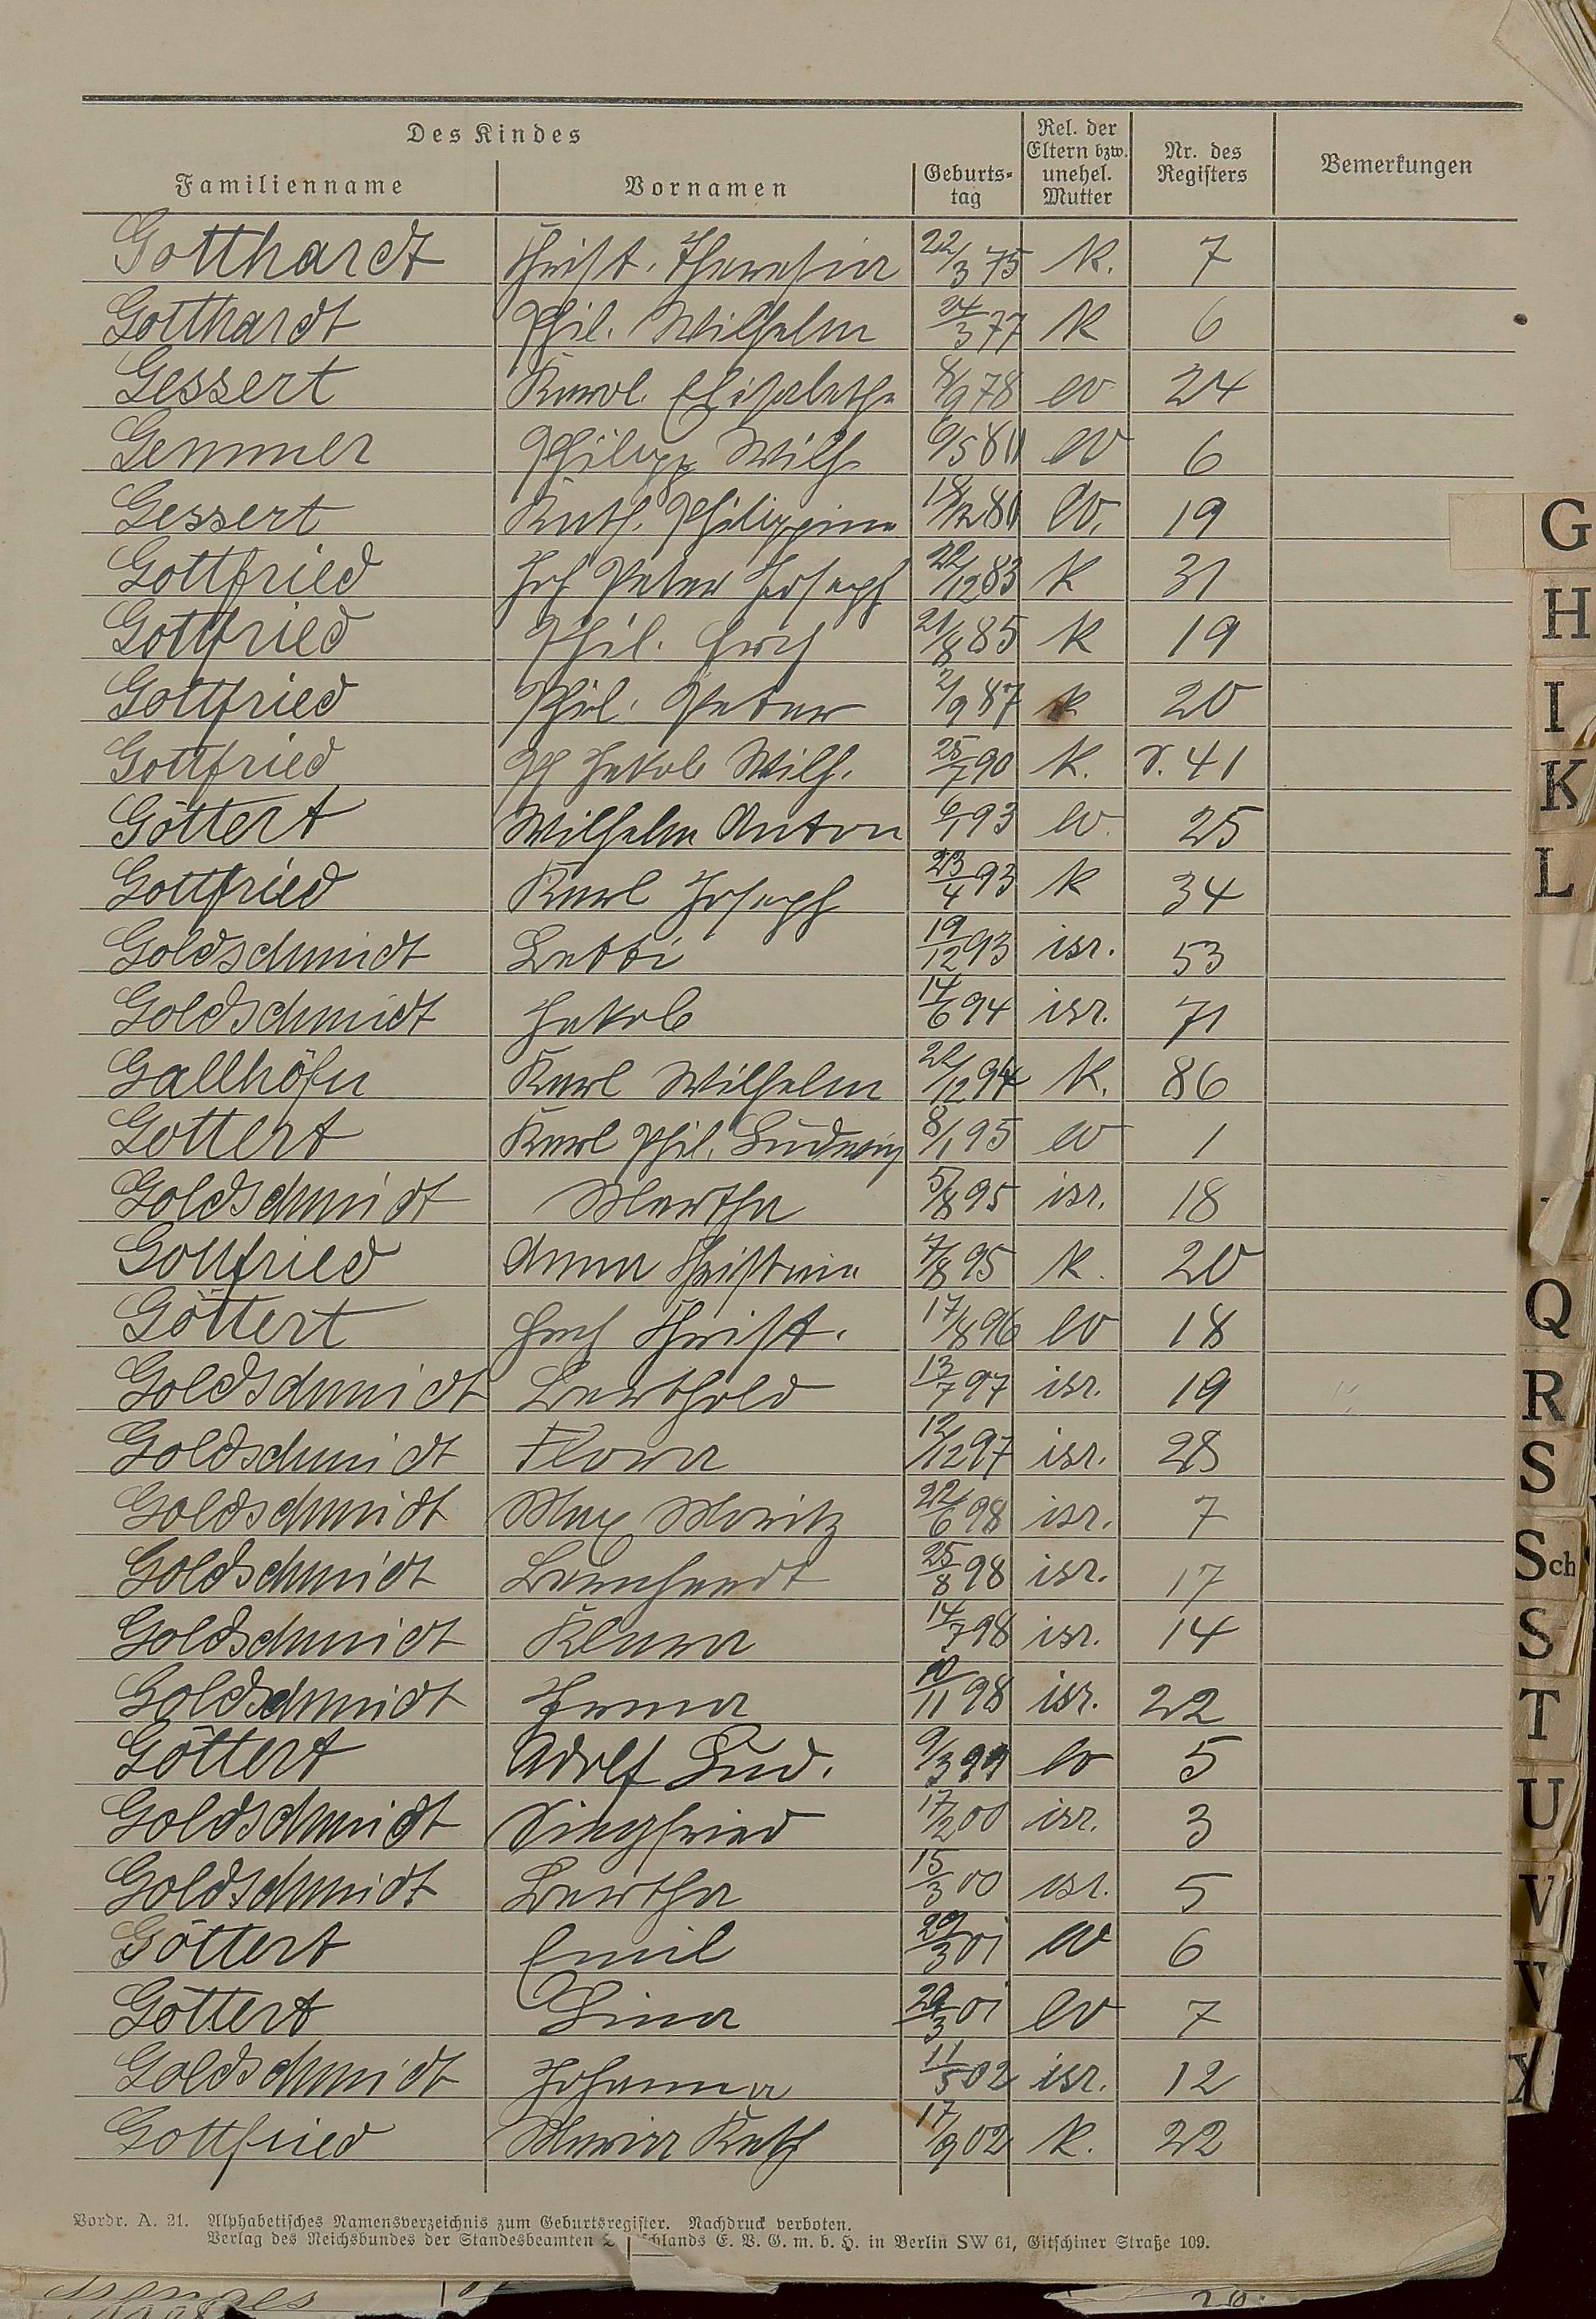 Des Kindes
Familienname Vornamen Geburts-tag Rel. der Eltern bzw. unehel. Mutter Nr. des Registers Bemerkungen
Gotthardt Christ. Theresia 22/3 75 k. 7
Gotthardt Phil. Wilhelm 24/3 77 k 6
Gessert Karol. Elisabetha 8/9 78 ev 24
Gemmer Philipp Wilh. 6/5 80 ev 6
Gessert Kath. Philippine 18/12 80 ev. 19
Gottfried Joh Peter Joseph 22/12 83 k 31
Gottfried Phil. 21/8 85 k 19
Gottfried Phil. Peter 2/9 87 k 20
Gottfried Ph Jakob Wilh. 25/7 90 k. r. 41
Göttert Wilhelm Anton 6/1 93 ev. 25
Gottfried Karl Joseph 23/4 93 k 34
Goldschmidt Betti 19/12 93 isr. 53
Goldschmidt Jakob 14/6 94 isr. 71
Gallhöfer Karl Wilhelm 22/12 94 k. 86
Gottert Karl Phil. Ludwig 8/1 95 ev 1
Goldschmidt Martha 5/8 95 isr. 18
Gottfried Anna Christine 7/8 95 k. 20
Göttert Christ. 17/8 96 ev 18
Goldschmidt Berthold 13/7 97 isr. 19
Goldschmidt Flora 12/12 97 isr. 28
Goldschmidt Max Moritz 22/6 98 isr. 7
Goldschmidt Bernhardt 25/8 98 isr. 17
Goldschmidt Klara 14/7 98 isr. 14
Goldschmidt Irma 10/11 98 isr. 22
Göttert Adolf Lud. 9/3 99 ev 5
Goldschmidt Siegfried 17/2 00 isr. 3
Goldschmidt Bertha 15/3 00 isr. 5
Göttert Emil 29/3 01 ev 6
Göttert Lina 29/3 01 ev 7
Goldschmidt Johanna 11/5 02 isr. 12
Gottfried Maria Kath 17/9 02 k. 22
Vordr. A. 21. Alphabetisches Namensverzeichnis zum Geburtsregister. Nachdruck verboten.
Verlag des Reichsbundes der Standesbeamten schlands E. V. G. m. b. H. in Berlin SW 61, Gitschiner Straße 109.
G
H
I
K
L
Q
R
S
Sch
S
T
U
V